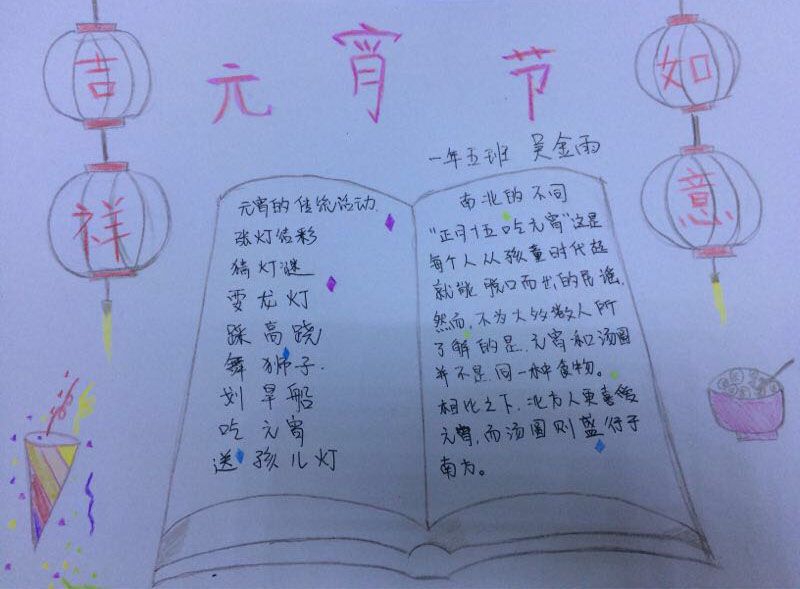 吉祥
元宵节
如意
一年五班 吴金雨
元宵的传统活动
张灯结彩
猜灯谜
耍龙灯
踩高跷
舞狮子.
划旱船
吃元宵
送孩儿灯
南北的不同
“正月十五吃元宵”这是
每个人从孩童时代起
就能脱口而出的民谣.
然而,不为大多数人所
了解的是.元宵和汤圆
并不是同一种食物。
相比之下.北方人更喜爱
元宵,而汤圆则盛行于
南方。